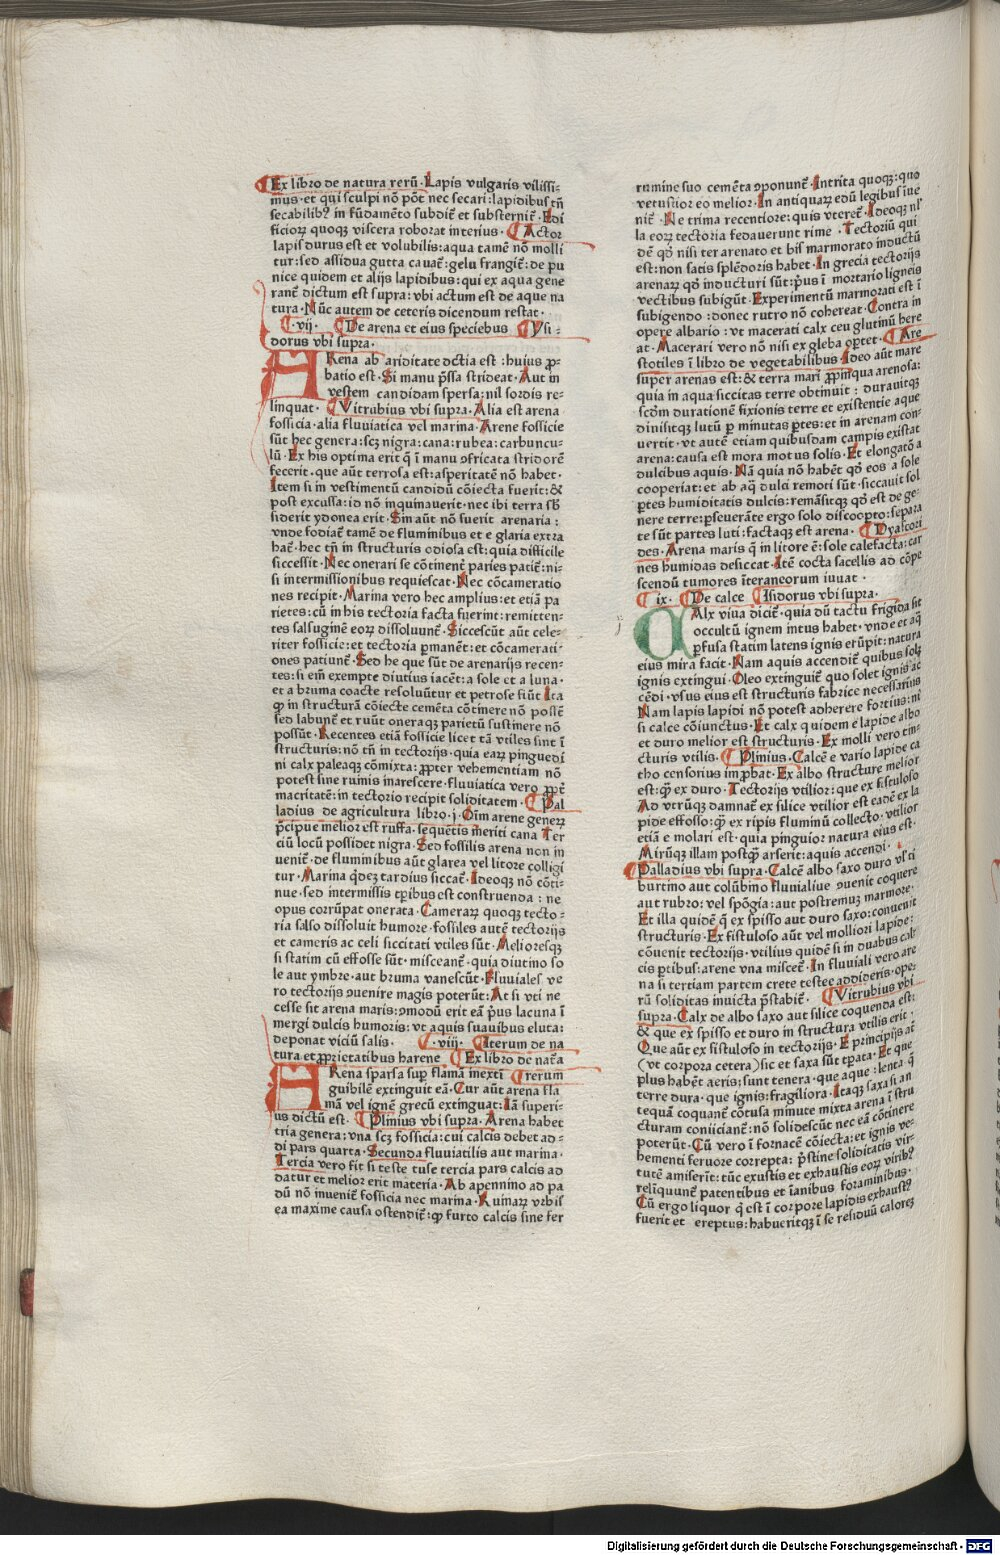 Ex libro de natura rerū. Lapis vulgaris vilissi-
mus. et qui sculpi nō pōt nec secari: lapidibus tn̄
secabilibꝰ in fūdamēto subdit᷑ et substernit᷑. Edi
ficioꝝ quoqꝫ viscera roborat interius. Actor
lapis durus est et volubilis: aqua tamē nō molli
tur: sed assidua gutta cauat᷑: gelu frangit᷑: de pu
nice quidem et alijs lapidibus: qui ex aqua gene
rant᷑ dictum est supra: vbi actum est de aque na
tura. Nūc autem de ceteris dicendum restat.
.vij. De arena et eius speciebus Ysi-
dorus vbi supra.
ARena ab ariditate dc̄ta est: huius ꝓ-
batio est. Si manu p̄ssa strideat. Aut in
vestem candidam spersa: nil sordis re-
linquat. Vitrubius vbi supra. Alia est arena
fossicia. alia fluuiatica vel marina. Arene fossicie
sūt hec genera: scꝫ nigra: cana: rubea: carbuncu-
lū. Ex his optima erit q̄ ī manu ꝯfricata stridorē
fecerit. que aūt terrosa est: asperitatē nō habet.
Item si in vestimentū candidū cōiecta fuerit: &
post excussa: id nō inquinauerit. nec ibi terra sb̄
siderit ydonea erit. Sin aūt nō fuerit arenaria:
vnde fodiat᷑ tamē de fluminibus et e glaria extra
hat᷑. hec tn̄ in structuris odiosa est: quia difficile
siccessit. Nec onerari se cōtinent᷑ paries patit᷑: ni-
si intermissionibus requiescat. Nec cōcameratio
nes recipit. Marina vero hec amplius: et etiā pa
rietes: cū in his tectoria facta fuerint: remitten-
tes salsuginē eoꝝ dissoluunt᷑. Siccescūt aūt cele-
riter fossicie: et tectoria ꝑmanēt: et cōcamerati-
ones patiunt᷑. Sed he que sūt de arenarijs recen-
tes: si em̄ exempte diutius iacēt: a sole et a luna.
et a bruma coacte resoluūtur et petrose fiūt Ita
ꝙ in structurā cōiecte cemēta cōtinere nō possūt
sed labunt᷑ et ruūt oneraqꝫ parietū sustinere nō
possūt. Recentes etiā fossicie licet tā vtiles sint ī
structuris: nō tn̄ in tectorijs. quia eaꝝ pinguedi
ni calx paleaqꝫ cōmixta: ꝓpter vehementiam nō
potest sine rimis inarescere. fluuiatica vero ꝓpt᷑
macritatē: in tectorio recipit soliditatem. Pal
ladius de agricultura libro.j. Oīm arene generꝝ
p̄cipue melior est ruffa. sequētis meriti cana Ter
ciū locū possidet nigra. Sed fossilis arena non in
uenit᷑. de fluminibus aūt glarea vel litore colligi
tur. Marina qͥdeꝫ tardius siccat᷑. Ideoqꝫ nō cōti-
nue. sed intermissis tp̄ibus est construenda: ne
opus corrūpat onerata. Cameraꝝ quoqꝫ tecto-
ria salso dissoluit humore. fossiles autē tectorijs
et cameris ac celi siccitati vtiles sūt. Melioresqꝫ
si statim cū effosse sūt. misceant᷑. quia diutino so
le aut ymbre. aut bruma vanescūt. Fluuiales ve
ro tectorijs ꝯuenire magis poterūt: At si vti ne
cesse sit arena maris: ꝯmodū erit eā p̄us lacuna ī
mergi dulcis humoris: vt aquis suauibus eluta:
deponat viciū salis. .viij. Iterum de na
tura et ꝓprietatibus harene Ex libro de nat̄a
ARena sparsa suꝑ flāmā inexti rerum
guibilē extinguit eā. Cur aūt arena fla
mā vel ignē grecū extinguat: Iā superi-
us dictū est. Plinius vbi supra. Arena habet
tria genera: vna scꝫ fossicia: cui calcis debet ad-
di pars quarta. Secunda fluuiatilis aut marina.
Tercia vero fit si teste tuse tercia pars calcis ad
datur et melior erit materia. Ab apennino ad pa
dū nō inuenit᷑ fossicia nec marina. Ruinaꝝ vrbis
ea maxime causa ostendit᷑: ꝙ furto calcis sine fer
rumine suo cemēta ꝯponunt᷑. Intrita quoqꝫ: quo
vetustior eo melior. In antiquaꝝ edū legibus īue
nit᷑. Ne trima recentiore: quis vteret᷑. Ideoqꝫ nl̄
la eoꝝ tectoria fedauerunt rime. Tectoriū qui
dē qd̓ nisi ter arenato et bis marmorato inductū
est: non satis splēdoris habet. In grecia tectorijs
arenaꝝ qd̓ inducturi sūt: p̄us ī mortario ligneis
vectibus subigūt. Experimentū marmorati est ī
subigendo: donec rutro nō cohereat. Contra in
opere albario: vt macerati calx ceu glutinū here
at. Macerari vero nō nisi ex gleba oꝑtet. Are
stotiles ī libro de vegetabilibus. Ideo aūt mare
super arenas est: & terra mari ꝓpinqua arenosa:
quia in aqua siccitas terre obtinuit: durauitqꝫ
scd̓m durationē fixionis terre et existentie aque
diuisitqꝫ lutū ꝑ minutas ꝑtes: et in arenam con-
uertit. vt autē etiam quibusdam campis existat
arena: causa est mora motus solis. Et elongatō a
dulcibus aquis. Nā quia nō habēt qd̓ eos a sole
cooperiat: et ab aq̄ dulci remoti sūt. siccauit sol
ꝑtes humiditatis dulcis: remāsitqꝫ qd̓ est de ge-
nere terre: ꝑseuerāte ergo solo discooꝑto: separa
te sūt partes luti: factaqꝫ est arena. Dyascori
des. Arena maris q̄ in litore ē: sole calefacta: car
nes humidas desiccat. Itē cocta sacellis ad cōpe
scendū tumores īteraneorum iuuat.
ix. De calce Isidorus vbi supra.
CAlx viua dicit᷑. quia dū tactu frigida sit
occultū ignem intus habet. vnde et aq̄
ꝑfusa statim latens ignis erūpit: natura
eius mira facit. Nam aquis accendit᷑ quibus solꝫ
ignis extingui. Oleo extinguit᷑ quo solet ignis ac
cēdi. vsus eius est structuris fabrice necessarius
Nam lapis lapidi nō potest adherere fortius: ni
si calce cōiunctus. Et calx quidem e lapide albo
et duro melior est structuris. Ex molli vero tin-
cturis vtilis. Plinius. Calcē e vario lapide ca
tho censorius improbat. Ex albo structure melior
est: q̄ ex duro. Tectorijs vtilior: que ex fistuloso
Ad vtrūqꝫ damnat᷑ ex silice vtilior est eadē ex la
pide effosso: q̄ ex ripis fluminū collecto. vtilior
etiā e molari est. quia pinguior natura eius est.
Mirūqꝫ illam postq̄ arserit: aquis accendi.
Palladius vbi supra. Calcē albo saxo duro vl̓ ti
burtino aut colūbino fluuialiue ꝯuenit coquere
aut rubro: vel spōgia: aut postremuꝫ marmore.
Et illa quidē q̄ ex spisso aut duro saxo: conuenit
structuris. Ex fistuloso aūt vel molliori lapide:
cōuenit tectorijs. vtilius quidē si in duabus cal-
cis ꝑtibus: arene vna miscet᷑. In fluuiali vero are
na si tertiam partem crete testee addideris. ope-
rū soliditas inuicta p̄stabit᷑. Vitrubius vbi
supra. Calx de albo saxo aut silice coquenda est:
& que ex spisso et duro in structura vtilis erit.
Que aūt ex fistuloso in tectorijs. E principijs aūt
(vt corpora cetera) sic et saxa sūt tꝑata. Et que
plus habent aeris: sunt tenera. que aque: lenta. q̄
terre dura. que ignis: fragiliora. Itaqꝫ saxa si an
tequā coquant᷑ cōtusa minute mixta arena ī stru
cturam coniiciant᷑: nō solidescūt nec eā cōtinere
poterūt. Cū vero ī fornacē cōiecta: et ignis ve-
hementi feruore correpta: p̄stine soliditatis vir-
tutē amiserit: tūc exustis et exhaustis eoꝝ viribꝰ
relīquunt᷑ patentibus et īanibus foraminibus.
Cū ergo liquor q̄ est ī corpore lapidis exhaustꝰ
fuerit et ereptus: habueritqꝫ ī se residuū caloreꝫ
Digitalisierung gefördert durch die Deutsche Forschungsgemeinschaft - DFG